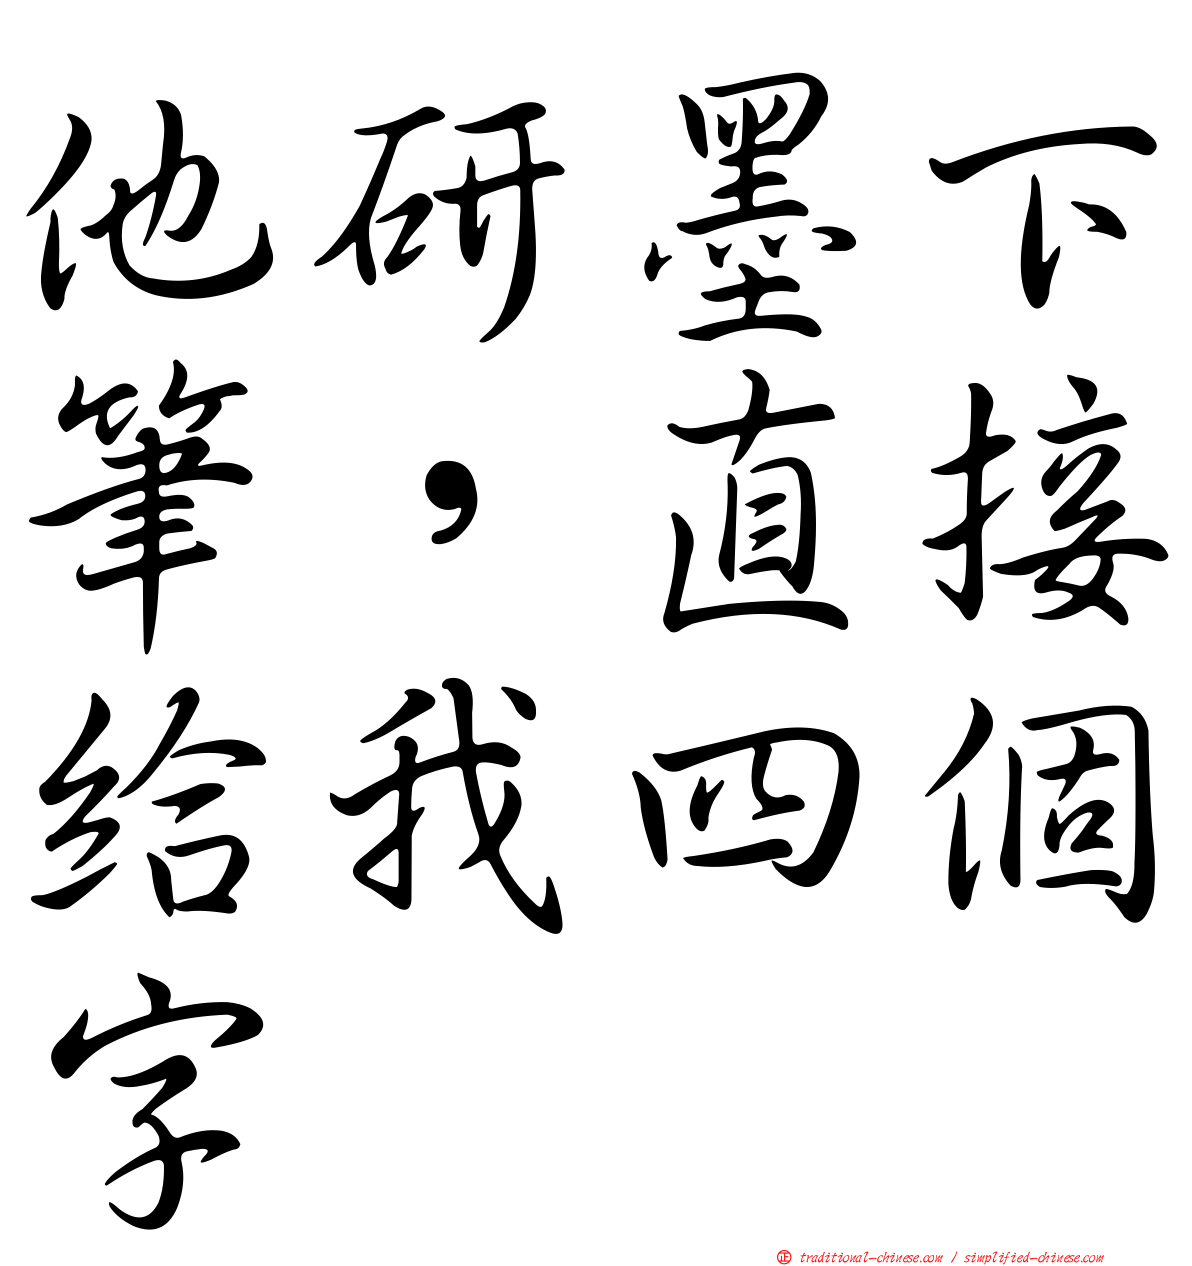 他研墨下
筆，直接
給我四個
字
正 traditional-chinese.com / simplified-chinese.com